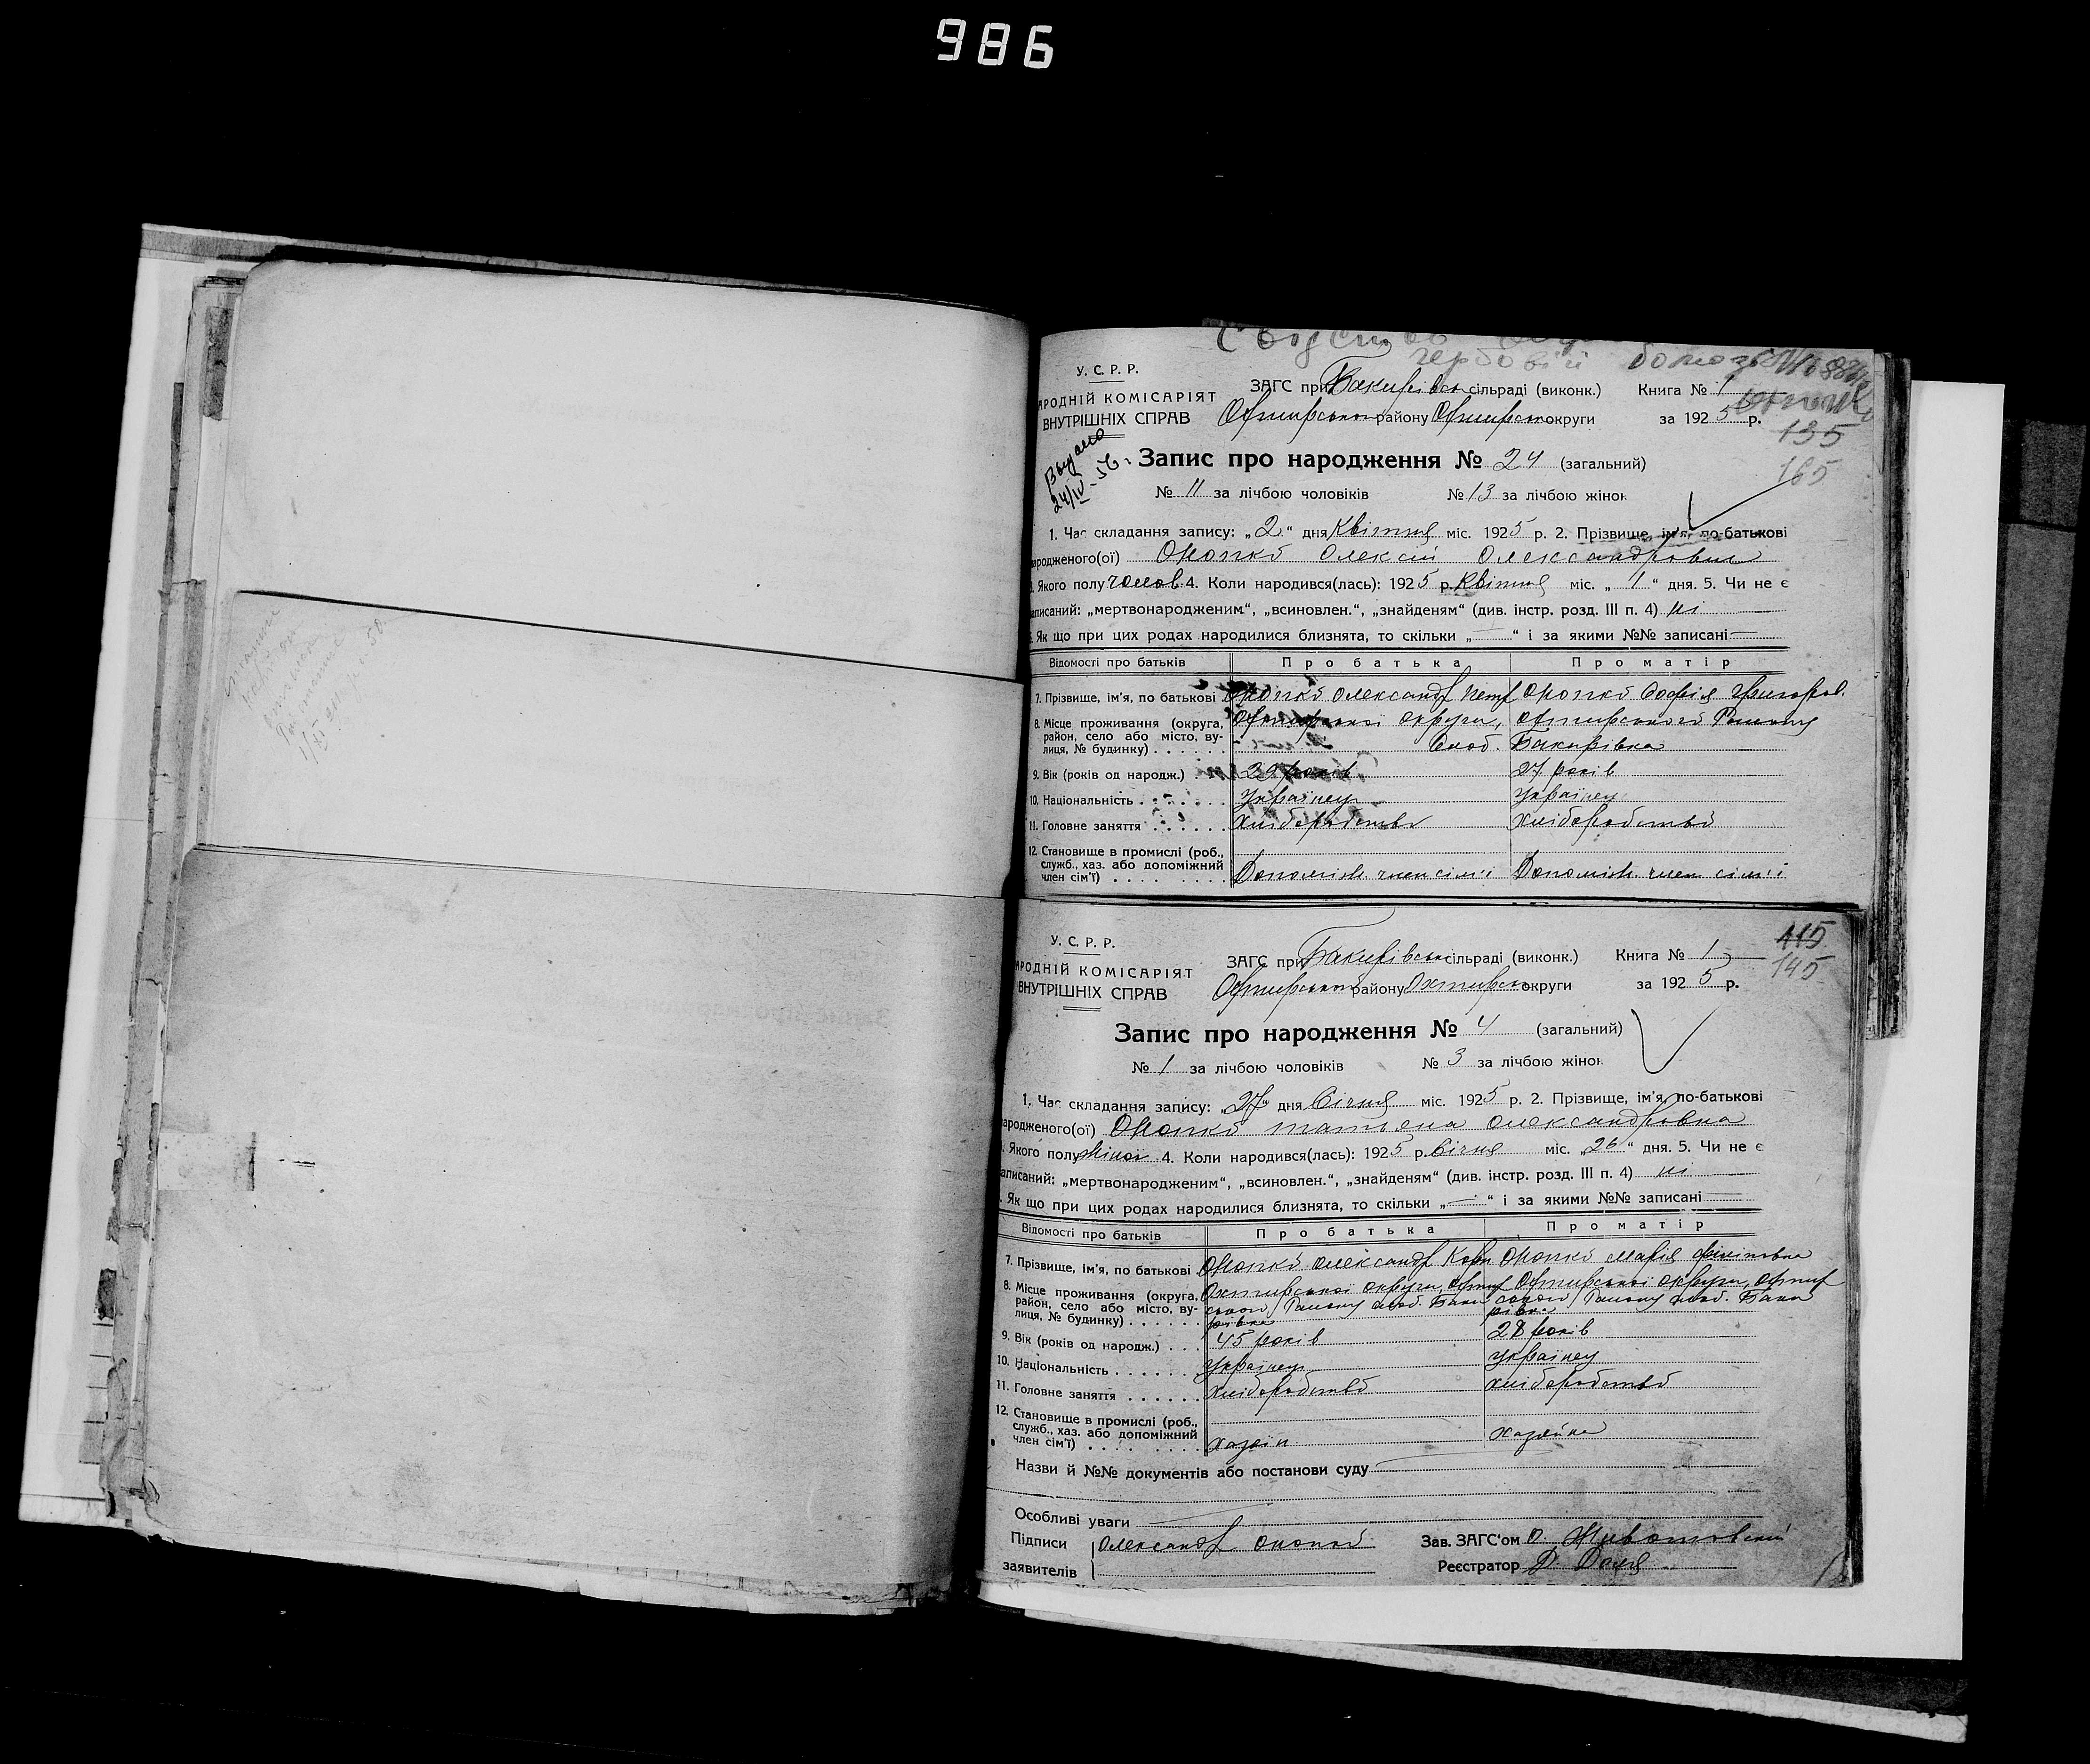 986
гербовій
У. С. Р. Р.
ЗАГС при Бакирівсь сільраді (виконк.) Книга № 1
АРОДНІЙ КОМІСАРІЯТ
ВНУТРІШНІХ СПРАВ Охтирського району Охтирсько округи за 1925 р.
135
165
Выдано
24/IV-56.
Запис про народження № 24 (загальний)
№ 11 за лічбою чоловіків № 13 за лічбою жінок
1. Час складання запису: „2“ дня Квітня міс. 1925 р. 2. Прізвище, ім'я, по-батькові
ародженого(ої) Онопко Олексій Олександрович
Якого полу чолов. 4. Коли народився(лась): 1925 р. Квітня міс. „1“ дня. 5. Чи не є
аписаний: „мертвонародженим“, „всиновлен.“, „знайденям“ (див. інстр. розд. III п. 4) ні
Як що при цих родах народилися близнята, то скільки „ “ і за якими №№ записані
Відомості про батьків Про батька Про матір
7. Прізвище, ім'я, по батькові Онопко Олександр Петр Онопко Софія Григоров.
8. Місце проживання (округа, район, село або місто, ву-лиця, № будинку) Охтирської округи, Охтирського Району
Слоб. Бакирівка
9. Вік (років од народж.) років 27 років
10. Національність Українец Українец
11. Головне заняття Хліборобство Хліборобство
12. Становище в промислі (роб.,
служб., хаз. або допоміжний
член сім'ї) Допоміж. член сім'ї Допоміж. член сім'ї
115
145
У. С. Р. Р.
ЗАГС при Бакирівсь сільраді (виконк.) Книга № 1
АРОДНІЙ КОМІСАРІЯТ
ВНУТРІШНІХ СПРАВ Охтирського району Охтирсько округи за 1925 р.
Запис про народження № 4 (загальний)
№ 1 за лічбою чоловіків № 3 за лічбою жінок
1. Час складання запису: „27“ дня Січня міс. 1925 р. 2. Прізвище, ім'я, по-батькові
ародженого(ої) Онопко Татьяна Олександровна
Якого полу жіноч 4. Коли народився(лась): 1925 р. Січня міс. „26“ дня. 5. Чи не є
аписаний: „мертвонародженим“, „всиновлен.“, „знайденям“ (див. інстр. розд. III п. 4) ні
Як що при цих родах народилися близнята, то скільки „ “ і за якими №№ записані
Відомості про батьків Про батька Про матір
7. Прізвище, ім'я, по батькові Онопко Олександр Корн Онопко Марія Филіповна
8. Місце проживання (округа, Охтирської округи, Охтир Охтирської округи, Охтир
район, село або місто, ву- ського Району слоб. Баки ського Району слоб. Баки
лиця, № будинку) рівка рівка
9. Вік (років од народж.) 45 років 28 років
10. Національність Українец Українец
11. Головне заняття Хліборобство Хліборобство
12. Становище в промислі (роб.,
служб., хаз. або допоміжний
член сім'ї) Хазяїн Хазяйка
Назви й №№ документів або постанови суду
Особливі уваги
Підписи Олександр Онопко Зав. ЗАГС'ом О. Животовський
заявителів Реєстратор